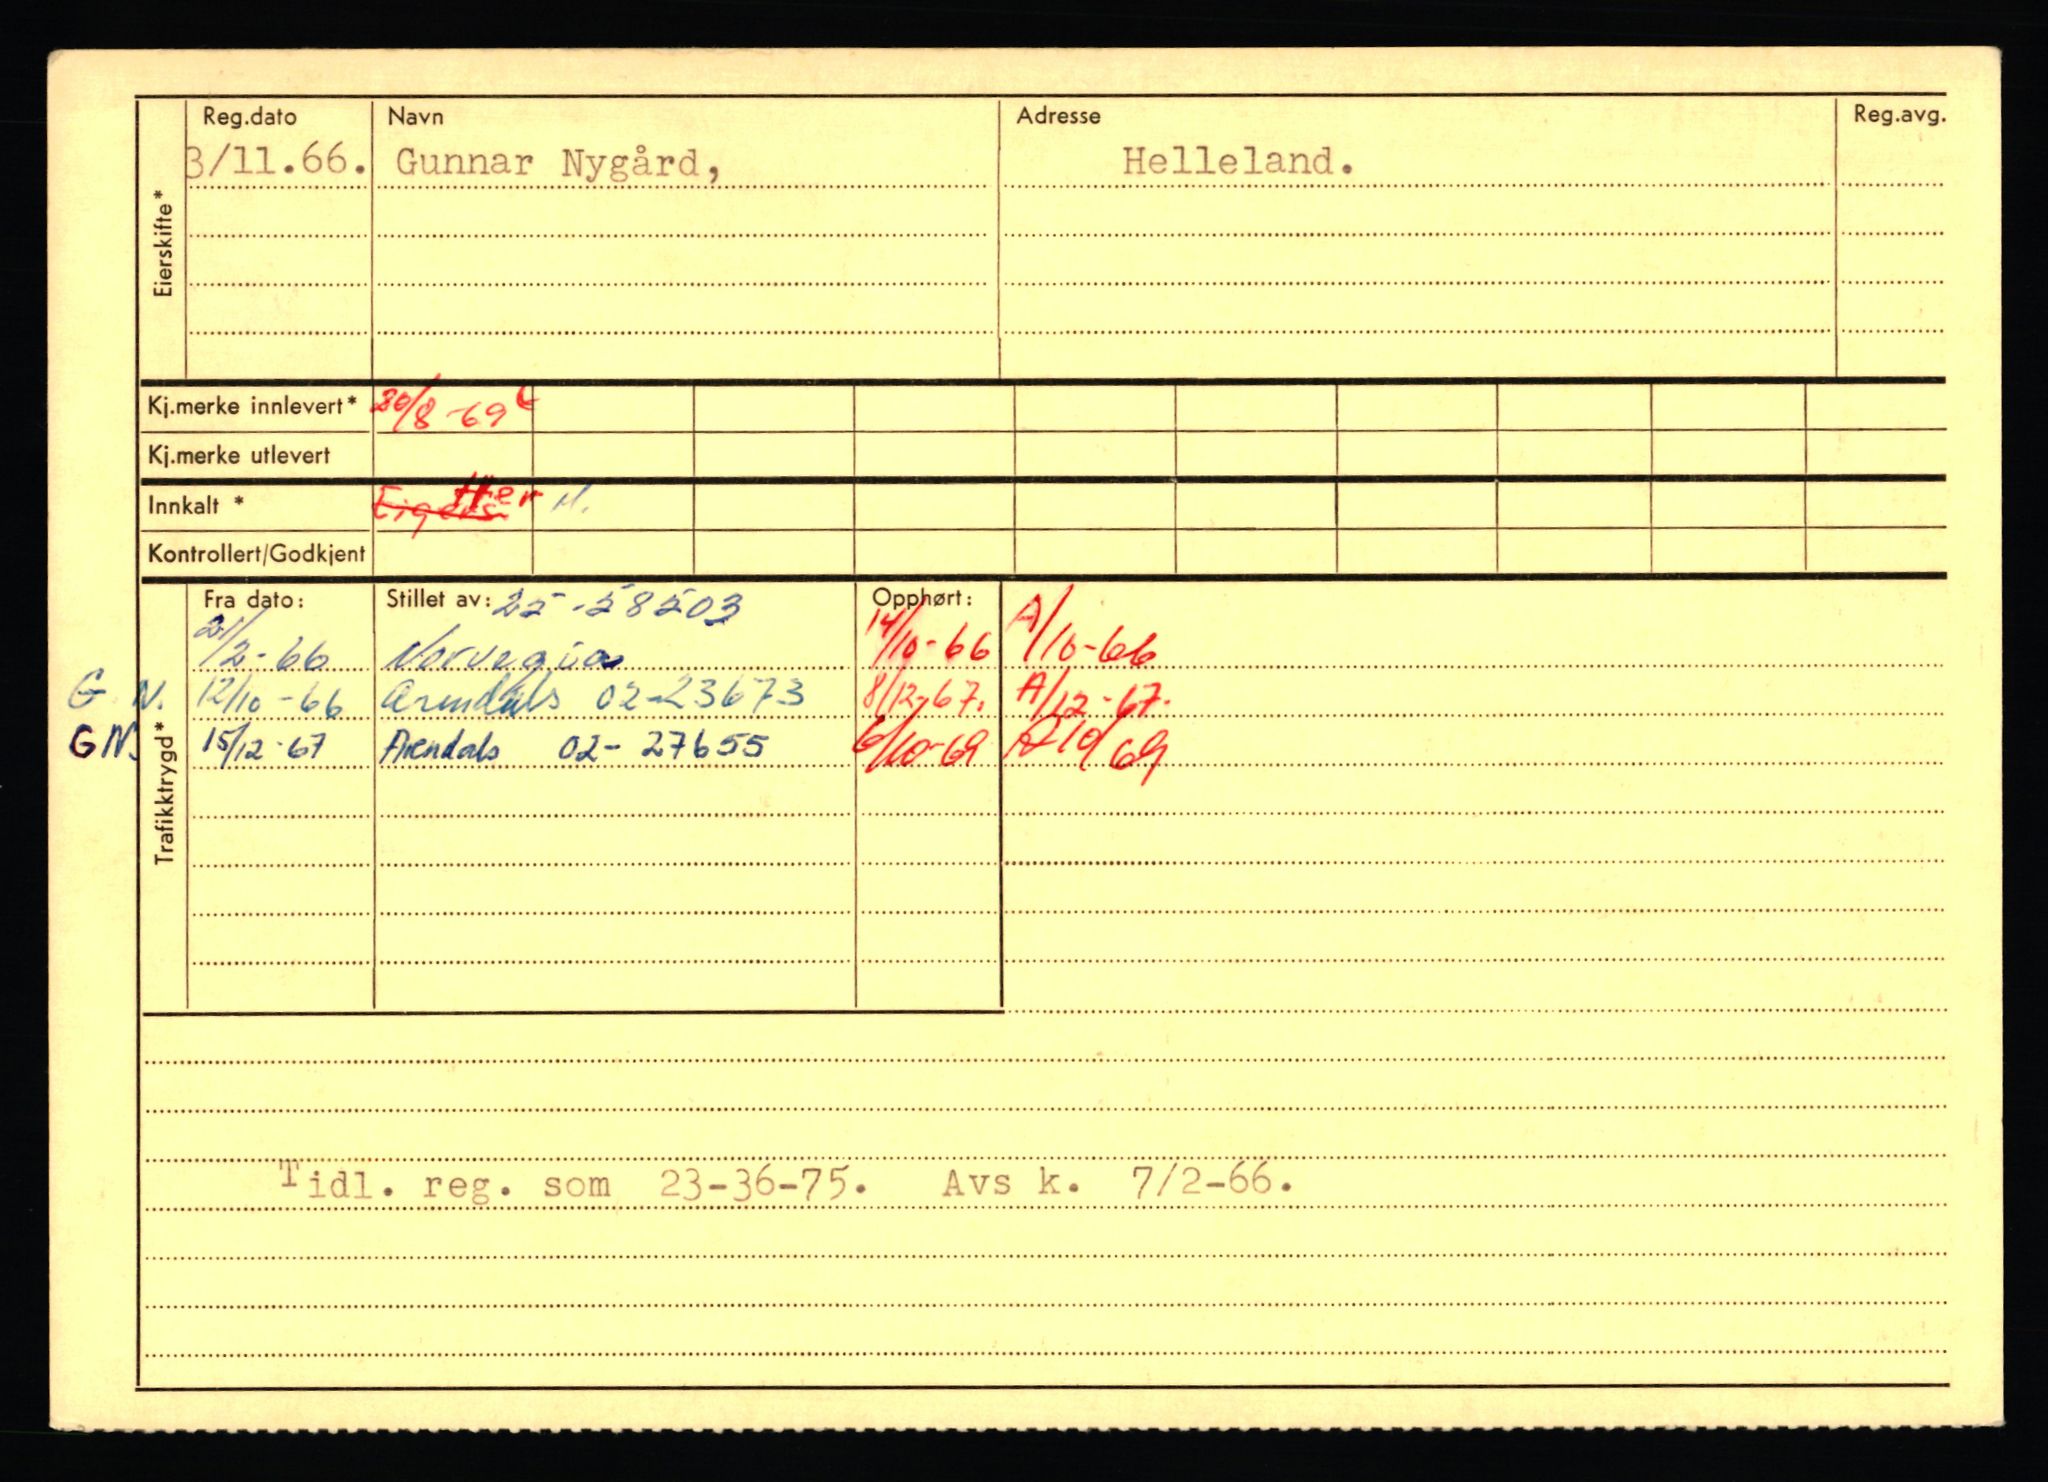 Reg.dato Navn Adresse Reg.avg.
3/11.66. Gunnar Nygård, Helleland.
Eierskifte*
Kj.merke innlevert* 20/8-69
Kj.merke utlevert
Innkalt *
Kontrollert/Godkjent
Fra dato: Stillet av: 25-58503 Opphørt:
21/2-66 Norvegia 14/10-66 A/10-66
G N. 12/10-66 Arendals 02-23673 8/12-67. A/12-67.
GN. 15/12-67 Arendals 02-27655 6/10-69 10/69
Trafikktrygd*
Tidl. reg. som 23-36-75. Avs k. 7/2-66.